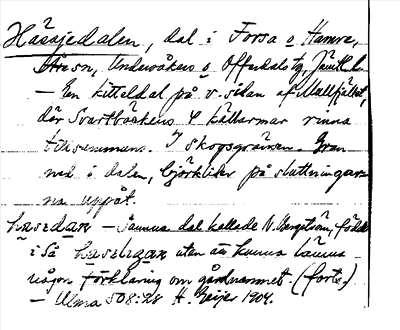 Häsajedalen, dal i Forsa o Hamre,
Undersåkers o Offerdals tg, Jämtl.
– En kitteldal på v. sidan af Mullfjället,
där Svartbäckens 4 källarmar rinna
tillsammans. I skogsgränsen. Gran
ned i dalen, björklider på sluttningar-
na uppåt.
– Samma dal kallade N. Bengtsson, född
i Så uten att kunna lämna
någon förklaring om gårdnamnet. (forts.)
– Ulma 508:28 H. Geijer 1904.